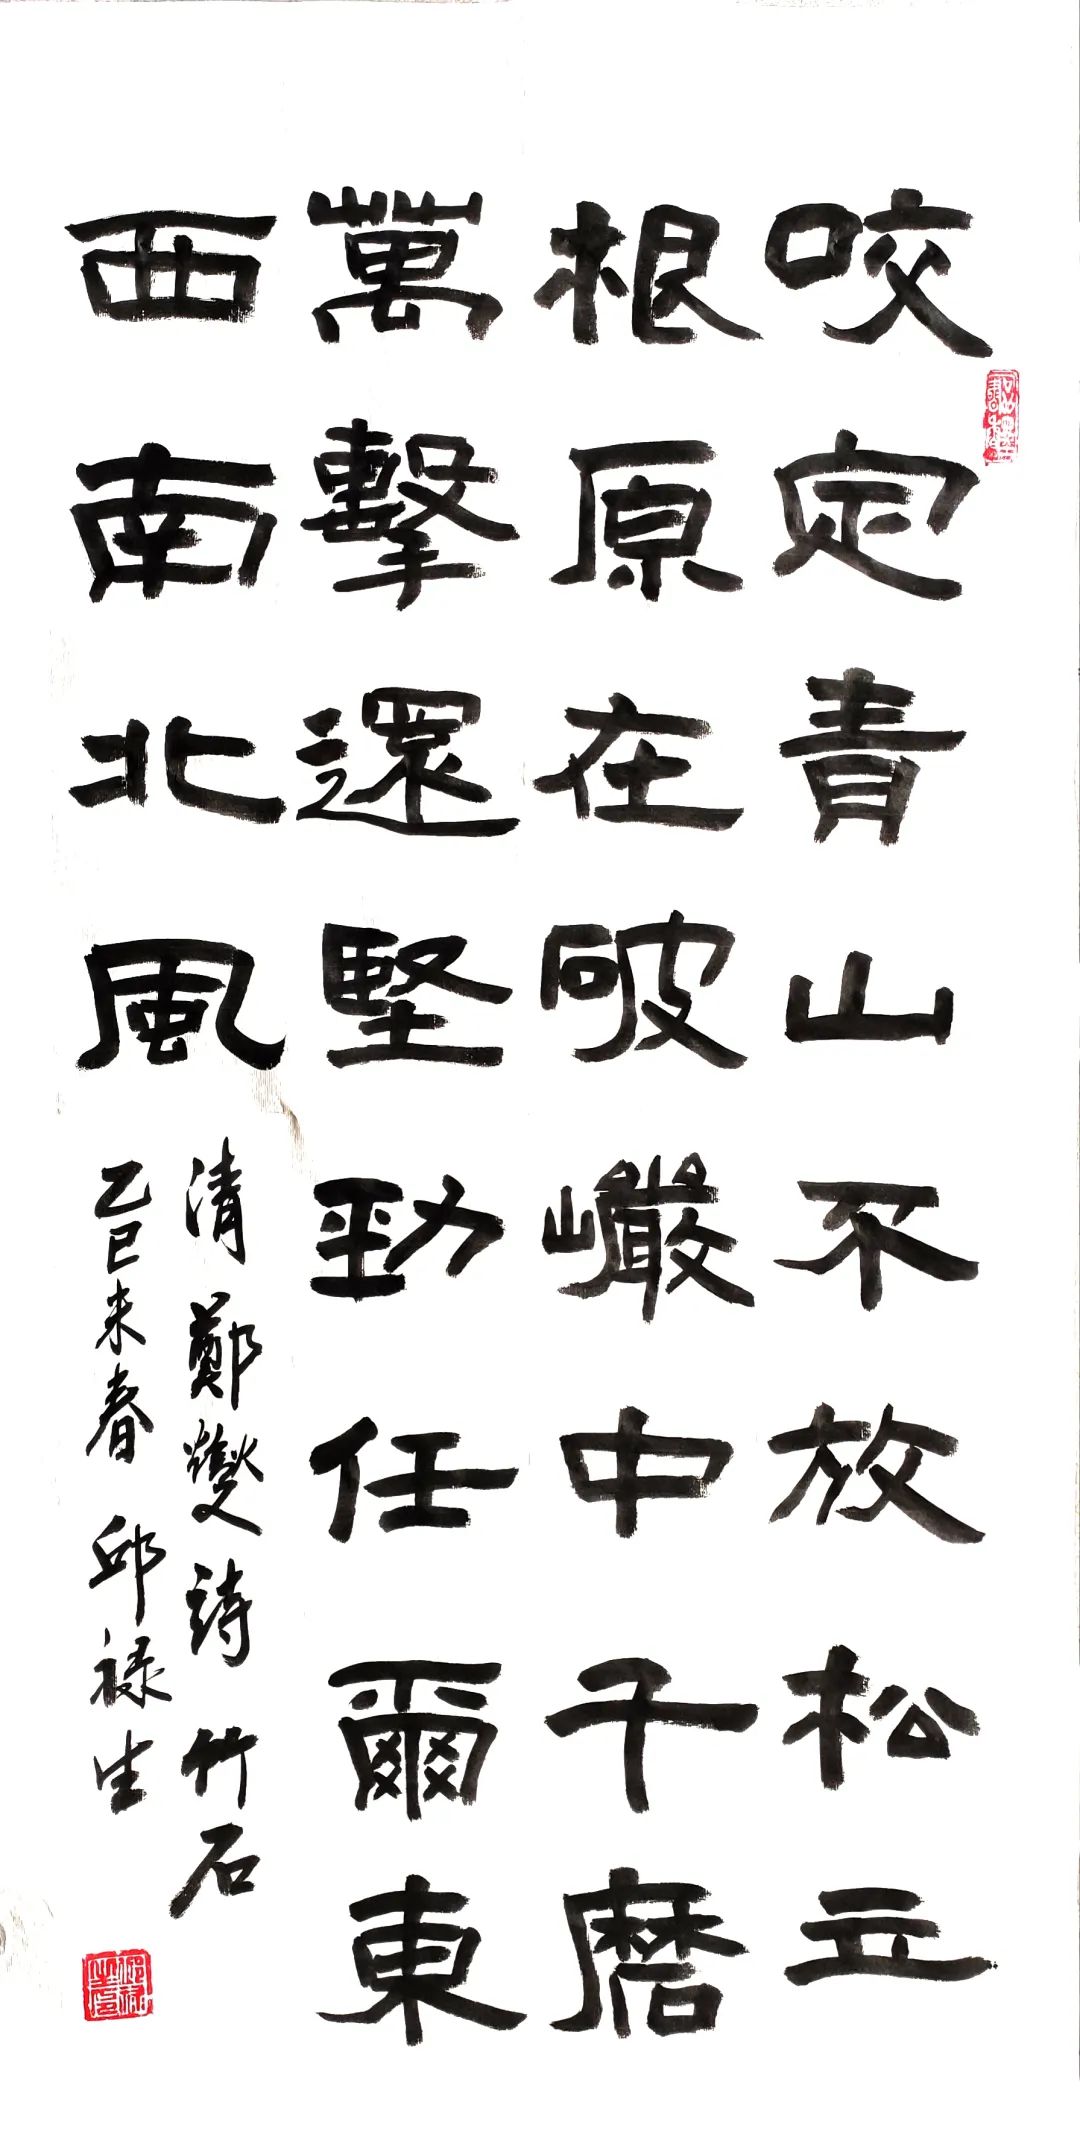 咬定青山不放松立
根原在破巖中千磨
萬擊還堅勁任爾東
西南北風
清鄭燮詩竹石
乙巳来春邱禄生